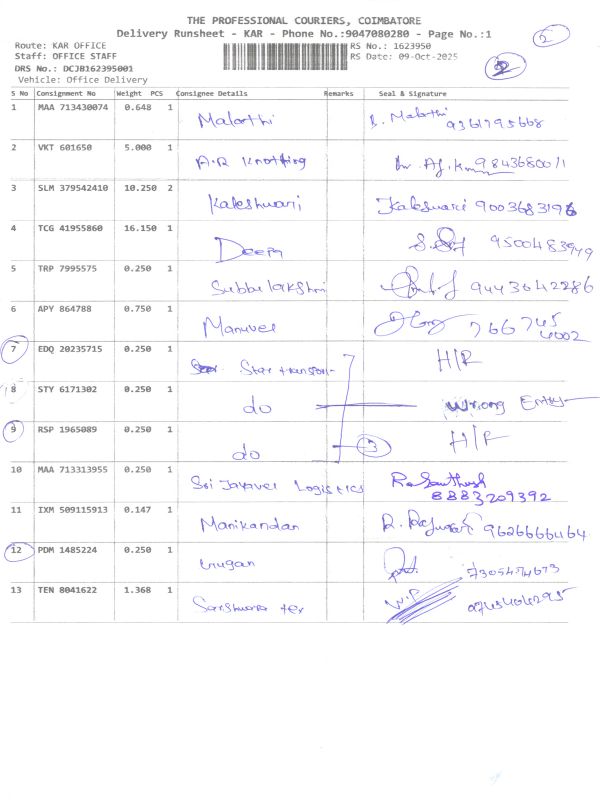 THE PROFESSIONAL COURIERS, COIMBATORE
Delivery Runsheet - KAR - Phone No.:9047080280 - Page No.:1
Route: KAR OFFICE
RS No.: 1623950
Staff: OFFICE STAFF
RS Date: 09-Oct-2025
DRS No.: DCJB162395001
Vehicle: Office Delivery
2
S No Consignment No Weight PCS Consignee Details Remarks Seal & Signature
1 MAA 713430074 0.648 1 Malathi Malathi 9361795668
2 VKT 601650 5.000 1 A.R Knotting 9843680011
3 SLM 379542410 10.250 2 Kaleshwari Kaleswari 9003683196
4 TCG 41955860 16.150 1 Deepa 9500483949
5 TRP 7995575 0.250 1 Subbulakshmi 9443642286
6 APY 864788 0.750 1 Manuvel 766745
4002
7 EDQ 20235715 0.250 1 Star transport H/R
8 STY 6171302 0.250 1 do Wrong Entry
9 RSP 1965089 0.250 1 do 3 H/R
10 MAA 713313955 0.250 1 Sri Jayavel Logistics R. Santhosh
8883209392
11 IXM 509115913 0.147 1 Manikandan 9626666464
12 PDM 1485224 0.250 1 7305474673
13 TEN 8041622 1.368 1 tex